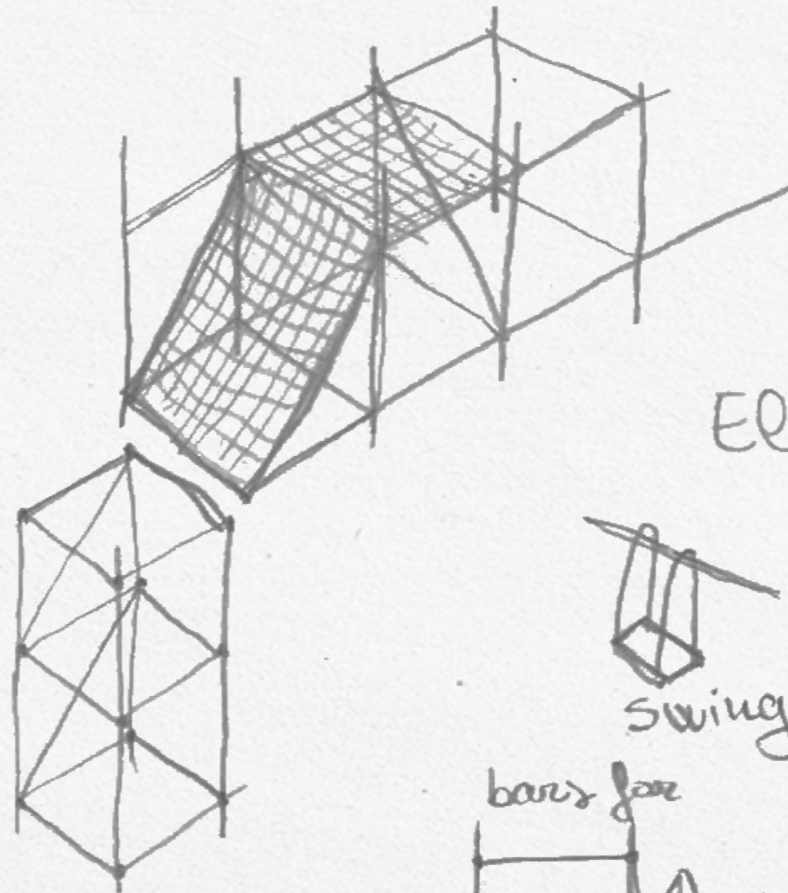 El
swing
bars for